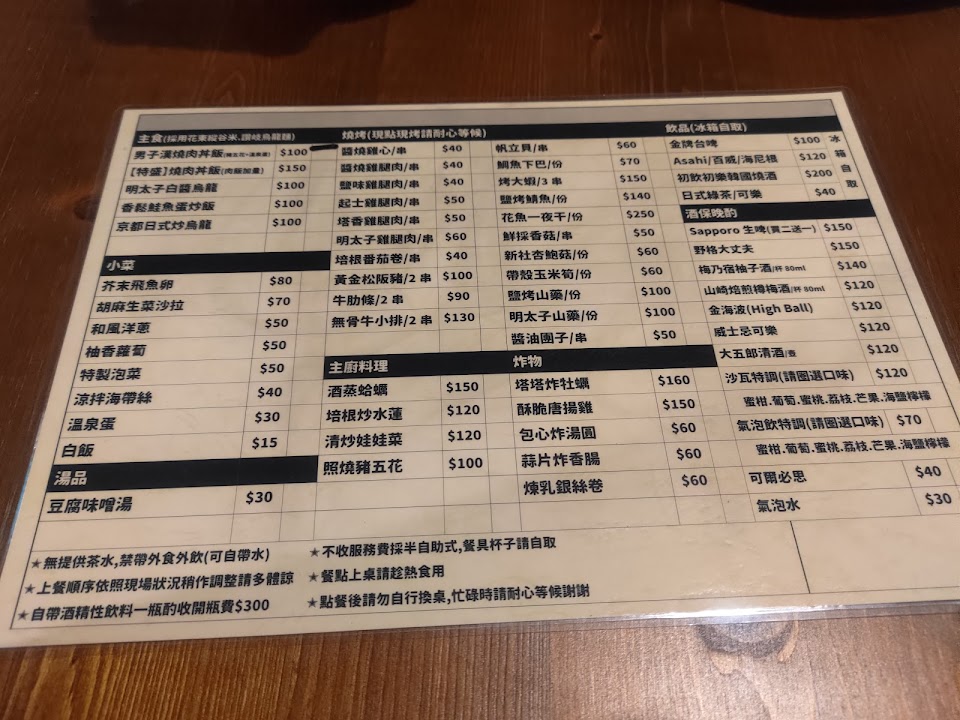 主食(採用花東縱谷米、讚岐烏龍麵)
男子漢燒肉丼飯(豬五花+溫泉蛋) $100
[特盛]燒肉丼飯(肉飯加量) $150
明太子白醬烏龍 $100
香鬆鮭魚蛋炒飯 $100
京都日式炒烏龍 $100
小菜
芥末飛魚卵 $80
胡麻生菜沙拉 $70
和風洋蔥 $50
柚香蘿蔔 $50
特製泡菜 $50
涼拌海帶絲 $40
溫泉蛋 $30
白飯 $15
湯品
豆腐味噌湯 $30
燒烤(現點現烤請耐心等候)
醬燒雞心/串 $40
醬燒雞腿肉/串 $40
鹽味雞腿肉/串 $40
起士雞腿肉/串 $50
塔香雞腿肉/串 $50
明太子雞腿肉/串 $60
培根番茄卷/串 $40
黃金松阪豬/2 串 $100
牛肋條/2 串 $90
無骨牛小排/2 串 $130
帆立貝/串 $60
鯛魚下巴/份 $70
烤大蝦/3 串 $150
鹽烤鯖魚/份 $140
花魚一夜干/份 $250
鮮採香菇/串 $50
新社杏鮑菇/份 $60
帶殼玉米筍/份 $60
鹽烤山藥/份 $100
明太子山藥/份 $100
醬油團子/串 $50
主廚料理
酒蒸蛤蠣 $150
培根炒水蓮 $120
清炒娃娃菜 $120
照燒豬五花 $100
炸物
塔塔炸牡蠣 $160
酥脆唐揚雞 $150
包心炸湯圓 $60
蒜片炸香腸 $60
煉乳銀絲卷 $60
飲品(冰箱自取)
金牌台啤 $100
Asahi/百威/海尼根 $120
初飲初樂韓國燒酒 $200
日式綠茶/可樂 $40
冰箱自取
酒保晚酌
Sapporo 生啤(買二送一) $150
野格大丈夫 $150
梅乃宿柚子酒/杯 80ml $140
山崎焙煎樽梅酒/杯 80ml $120
金海波(High Ball) $120
威士忌可樂 $120
大五郎清酒/壺 $120
沙瓦特調(請圈選口味) $120
蜜柑.葡萄.蜜桃.荔枝.芒果.海鹽檸檬
氣泡飲特調(請圈選口味) $70
蜜柑.葡萄.蜜桃.荔枝.芒果.海鹽檸檬
可爾必思 $40
氣泡水 $30
★無提供茶水,禁帶外食外飲(可自帶水)
★上餐順序依照現場狀況稍作調整請多體諒
★自帶酒精性飲料一瓶酌收開瓶費$300
★不收服務費採半自助式,餐具杯子請自取
★餐點上桌請趁熱食用
★點餐後請勿自行換桌,忙碌時請耐心等候謝謝